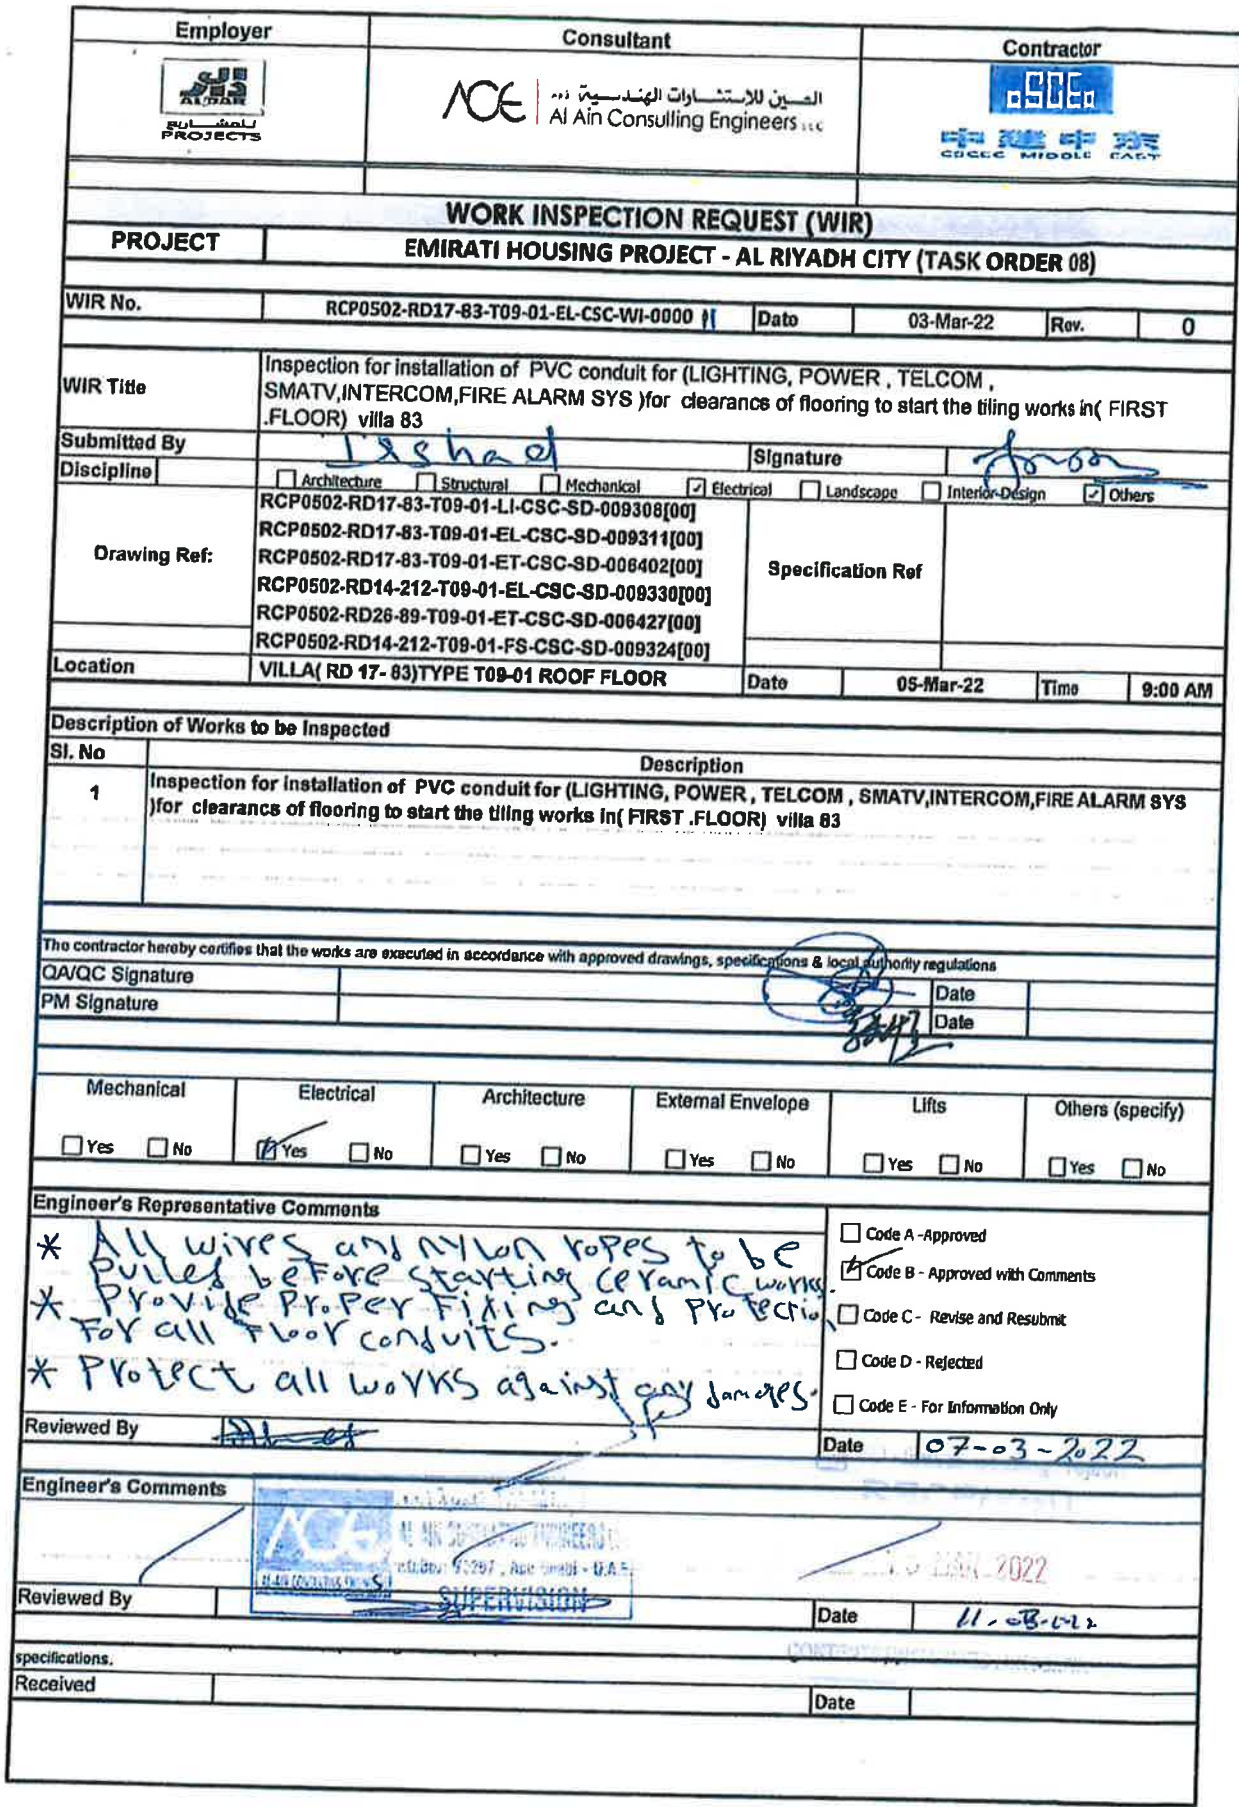 Employer
Consultant
Contractor
الدار
ALDAR
للمشاريع
PROJECTS
ACE
العين للاستشارات الهندسية ذ.م.م
Al Ain Consulting Engineers LLC
中建中东
CSCEC MIDDLE EAST
WORK INSPECTION REQUEST (WIR)
PROJECT
EMIRATI HOUSING PROJECT - AL RIYADH CITY (TASK ORDER 08)
WIR No.
RCP0502-RD17-83-T09-01-EL-CSC-WI-0000 11
Date
03-Mar-22
Rev.
0
WIR Title
Inspection for installation of PVC conduit for (LIGHTING, POWER , TELCOM ,
SMATV,INTERCOM,FIRE ALARM SYS )for clearancs of flooring to start the tiling works in( FIRST
.FLOOR) villa 83
Submitted By
Irshad
Signature
Discipline
Architecture
Structural
Mechanical
Electrical
Landscape
Interior-Design
Others
Drawing Ref:
RCP0502-RD17-83-T09-01-LI-CSC-SD-009308[00]
RCP0502-RD17-83-T09-01-EL-CSC-SD-009311[00]
RCP0502-RD17-83-T09-01-ET-CSC-SD-006402[00]
RCP0502-RD14-212-T09-01-EL-CSC-SD-009330[00]
RCP0502-RD26-89-T09-01-ET-CSC-SD-006427[00]
RCP0502-RD14-212-T09-01-FS-CSC-SD-009324[00]
Specification Ref
Location
VILLA( RD 17- 83)TYPE T09-01 ROOF FLOOR
Date
05-Mar-22
Time
9:00 AM
Description of Works to be Inspected
Sl. No
Description
1
Inspection for installation of PVC conduit for (LIGHTING, POWER , TELCOM , SMATV,INTERCOM,FIRE ALARM SYS
)for clearancs of flooring to start the tiling works in( FIRST .FLOOR) villa 83
The contractor hereby certifies that the works are executed in accordance with approved drawings, specifications & local authority regulations
QA/QC Signature
Date
PM Signature
Date
Mechanical
Electrical
Architecture
External Envelope
Lifts
Others (specify)
Yes No
Yes No
Yes No
Yes No
Yes No
Yes No
Engineer's Representative Comments
* All wires and nylon ropes to be
pulled before starting ceramic works.
* Provide proper fixing and protection
for all floor conduits.
* Protect all works against any damages.
Code A -Approved
Code B - Approved with Comments
Code C - Revise and Resubmit
Code D - Rejected
Code E - For Information Only
Reviewed By
Date
07-03-2022
Engineer's Comments
ACE
AL AIN CONSULTING ENGINEERS
Abu Dhabi - U.A.E
SUPERVISION
MAR 2022
Reviewed By
Date
specifications.
Received
Date